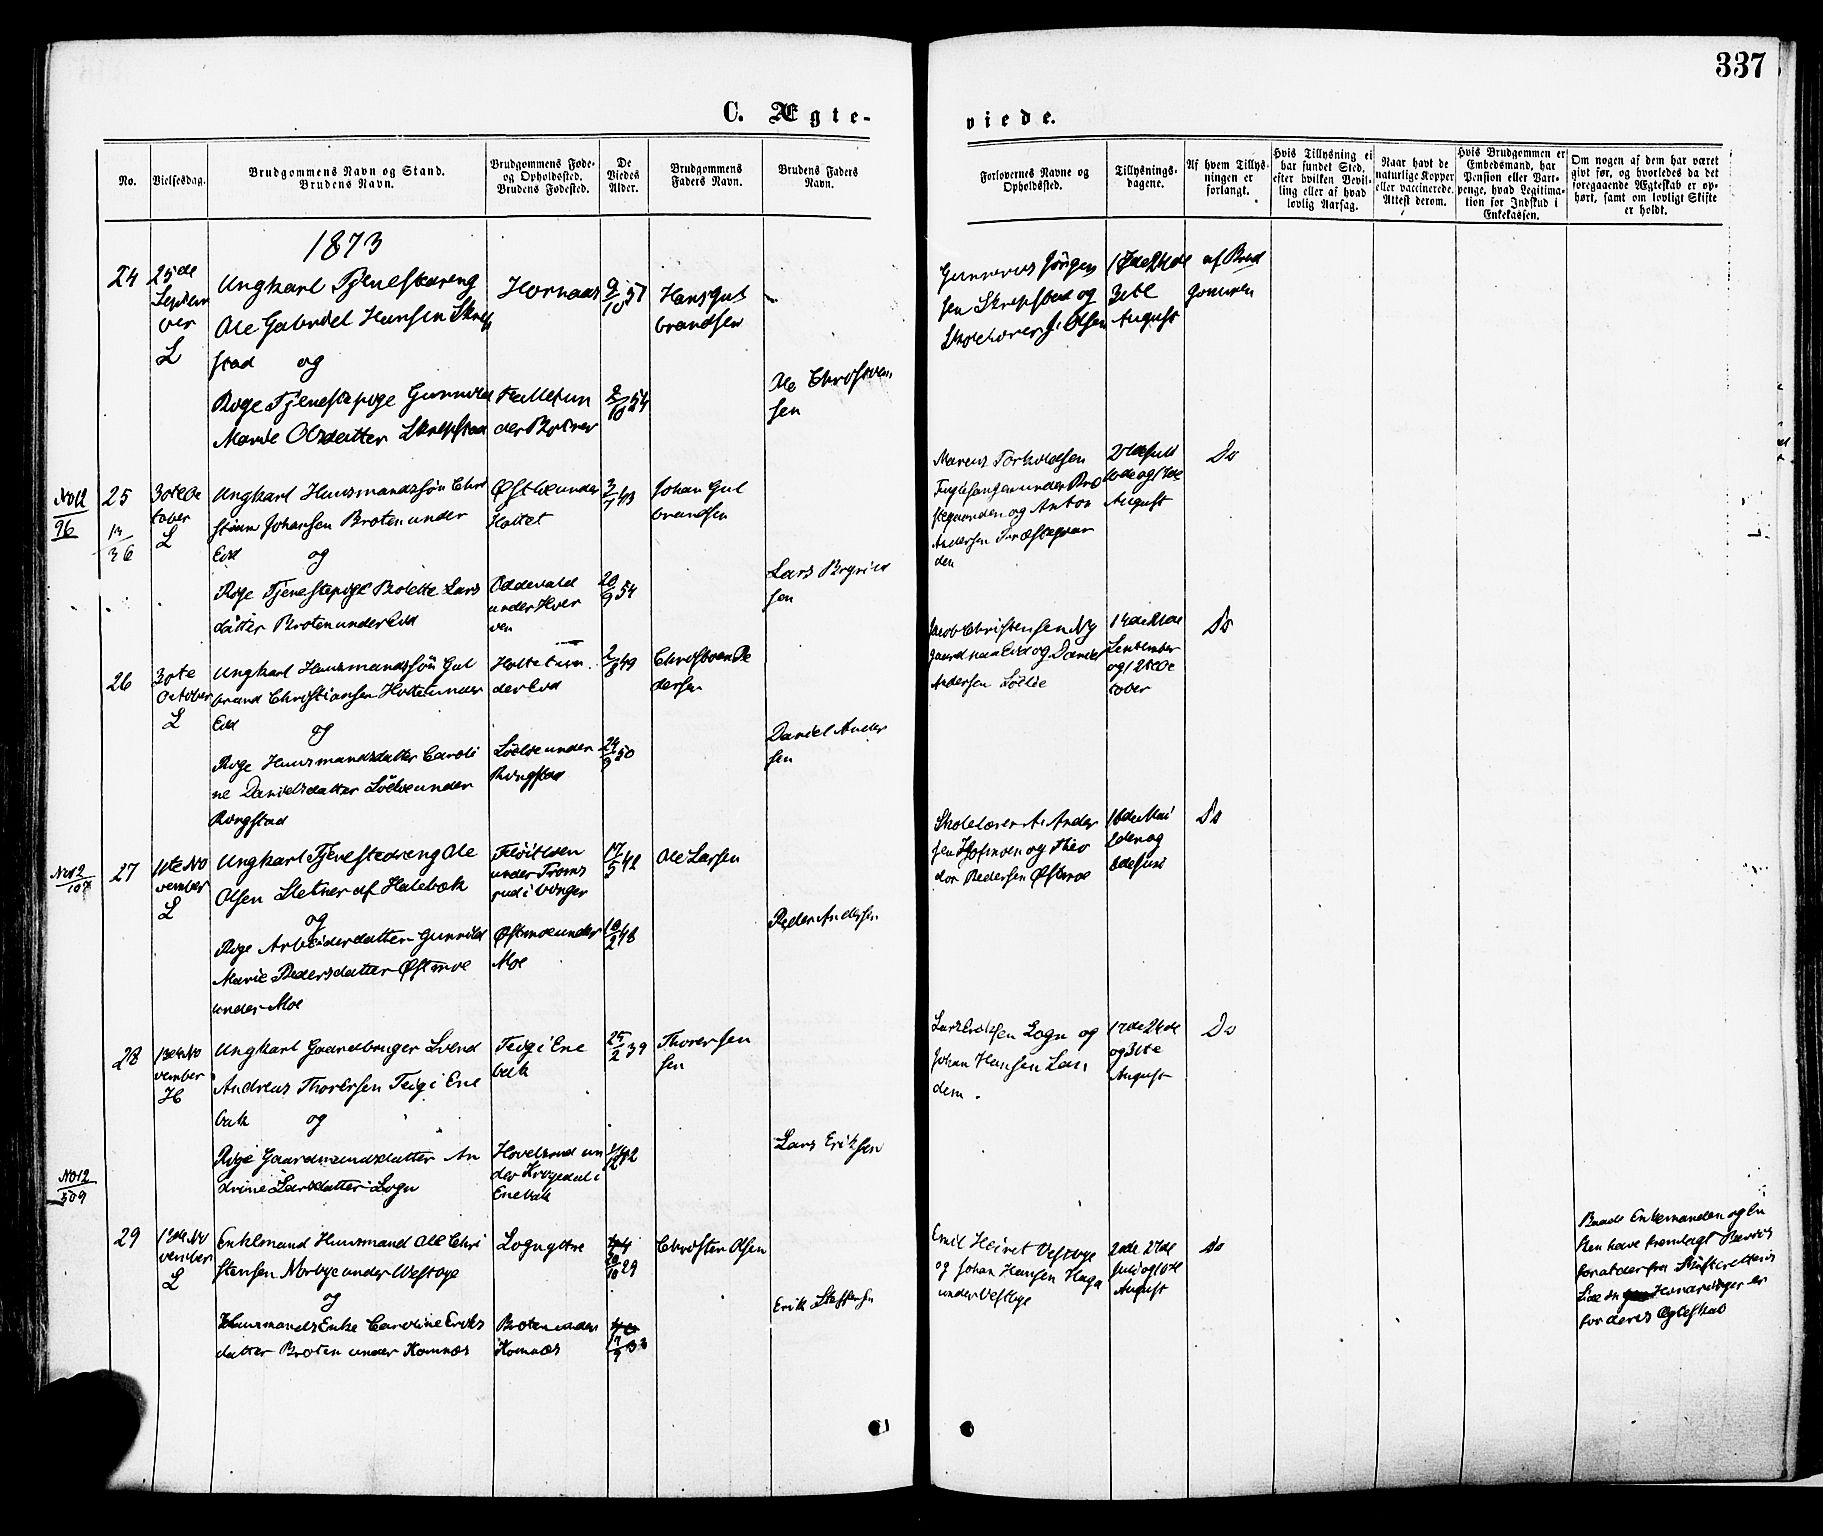 337
C. Ægte-
viede.
No.
Vielsesdag.
Brudgommens Navn og Stand.
Brudens Navn.
Brudgommens Føde-
og Opholdssted.
Brudens Fødested.
De
Viedes
Alder.
Brudgommens
Faders Navn.
Brudens Faders
Navn.
Forlovernes Navne og
Opholdssted.
Tillysnings-
dagene.
Af hvem Tillys-
ningen er
forlangt.
Hvis Tillysning ei
har fundet Sted,
efter hvilken Bevil-
ling eller af hvad
lovlig Aarsag.
Naar havt de
naturlige Kopper
eller vaccinerede.
Attest derom.
Hvis Brudgommen er
Embedsmand, har
Pension eller Vart-
penge, hvad Legitima-
tion for Indskud i
Enkekassen.
Om nogen af dem har været
gift før, og hvorledes da det
foregaaende Ægteskab er op-
hørt, samt om lovligt Skifte
er holdt.
1873
24
25de
Septem
ber
L
Ungkarl Tjenestdreng
Ole Gabriel Hansen Skrep
stad og
Pige Tjenestepige Gunnild
Marie Olsdatter Skrepstad
Hornaas
9/10 51
8/10 54
Hans Gul
brandsen
Ole Christian
sen
Gunnerus Jørgen
sen Skrepstad og
Skolelærer J. Olsen
17de 24de
31te
August
af Brud
gommen
No 12
96
25
3die Oc
tober
L
Ungkarl Huusmandssøn Chri
stian Johansen Broten under
Eid og
Pige Tjenestepige Bolette Lars
datter Broten under Eid
Østlie under
Holtet
3/7 43
20/9 54
Johan Gul
brandsen
Lars Brynild
sen
Marcus Torkildsen
Fuglesangen under Præ
stegaarden og Anton
Andersen Præstegaar
den
27de Juli
10de og 17de
August
Do
26
3die
October
L
Ungkarl Huusmandssøn Gul
brand Christiansen Holtet under
Eid
og
Pige Huusmandsdatter Caroli
ne Danielsdatter Løelie under
Ringstad
Holtet un
der Eid
Løelie under
Ringstad
2/8 49
24/9 50
Christian Pe
dersen
Daniel Ander
sen
Jacob Christensen Ny
gaard paa Eid og Daniel
Andersen Løelie
14de 21de
September
og 12te Oc
tober
Do
No 12
107
27
11te No
vember
L
Ungkarl Tjenestedreng Ole
Olsen Sletner af Halebæk
og
Pige Arbeiderdatter Gunnild
Marie Pedersdatter Østmoe
under Moe
17/5 42
10/2 48
Østmoe under
Moe
Ole Larsen
Peder Andersen
Skolelærer A. Ander
sen Hofmoen og Theo
dor Pedersen Østmoe
16de Mai
2den og
8de Juni
Do
28
13de No
vember
H
Ungkarl Gaardbruger Svend
Andreas Thorersen Teig i Ene
bak og
Pige Gaardmandsdatter An
drine Larsdatter Logn
Teig i Ene
bak
25/2 39
Thorersen
Lars Eriksen
Lars Eriksen Logn og
Johan Hansen Lan
dem
17de 24de
og 31te
August
Do
No 12
509
29
13de No
vember
L
Enkemand Huusmand Ole Chri
stensen Norbye under Westbye
og
Huusmands Enke Caroline Eriks
datter Broten under Komnæs
Logn ytre
Broten under
Komnæs
20/10 29
17/9 33
Christen Olsen
Erik Steffensen
og Johan Hansen Haga
under Vestbye
20de 27de
Juli og 10de
August
Do
Baade Enkemanden og En
ken have fremlagt Beviis
for at der fra Skifterettens
Side Hindringer er
for deres Ægteskab